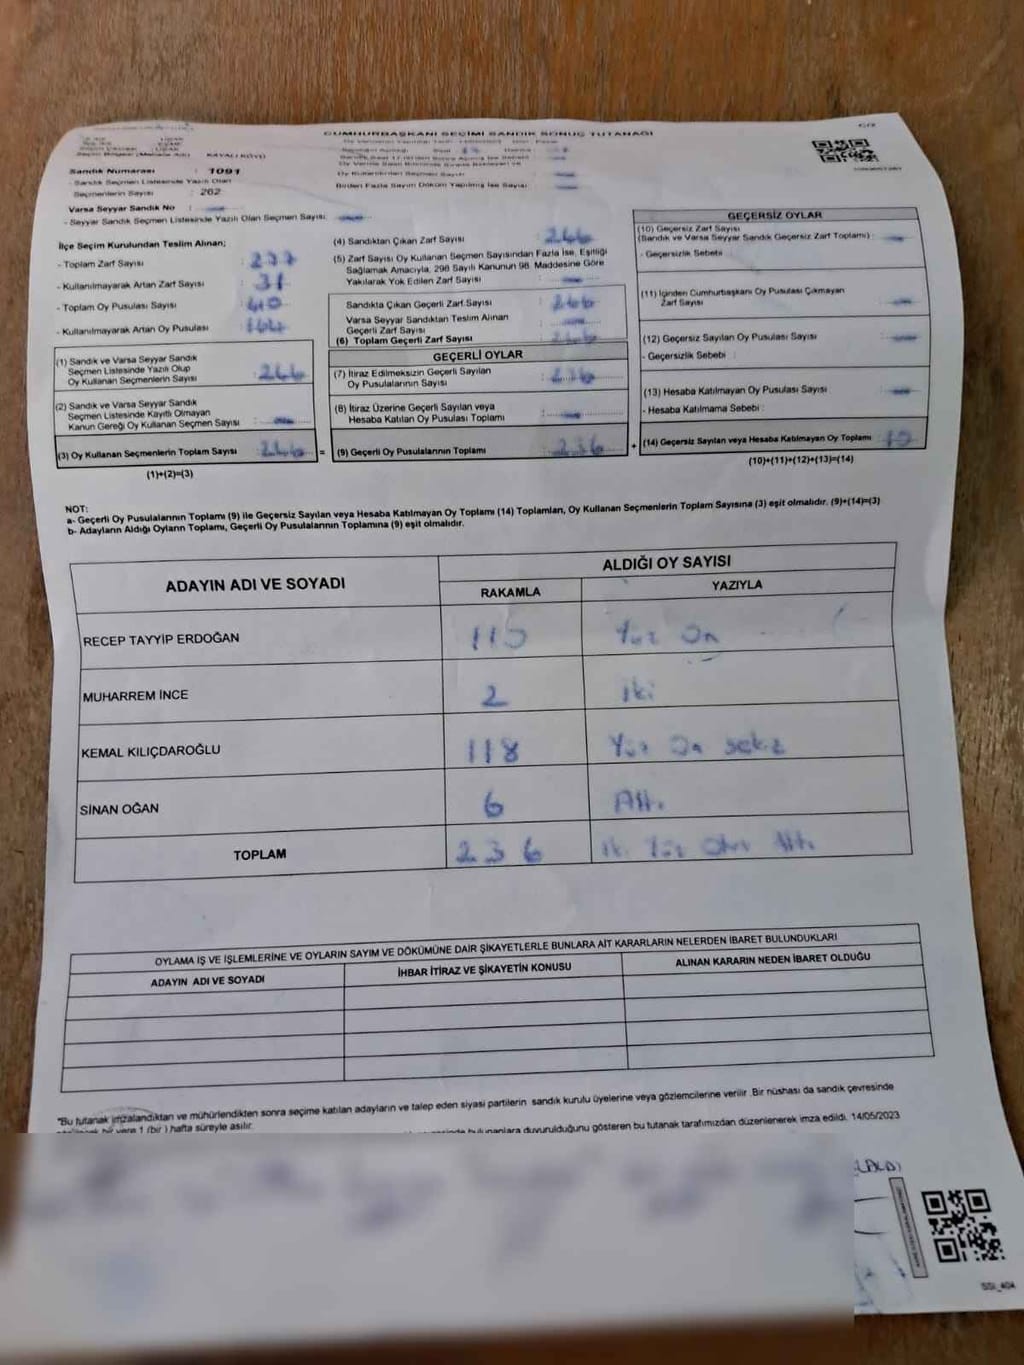 CUMHURBAŞKANI SEÇİMİ SANDIK SONUÇ TUTANAĞI
KAYALI KÖYÜ
Sandık Numarası : 1091
- Sandık Seçmen Listesinde Yazılı Olan
Seçmenlerin Sayısı : 262
Birden Fazla Sayım Döküm Yapılmış İse Sayısı :
Varsa Seyyar Sandık No : —
- Seyyar Sandık Seçmen Listesinde Yazılı Olan Seçmen Sayısı : —
İlçe Seçim Kurulundan Teslim Alınan;
- Toplam Zarf Sayısı : 277
- Kullanılmayarak Artan Zarf Sayısı : 31
- Toplam Oy Pusulası Sayısı :
- Kullanılmayarak Artan Oy Pusulası :
(1) Sandık ve Varsa Seyyar Sandık
Seçmen Listesinde Yazılı Olup
Oy Kullanan Seçmenlerin Sayısı : 246
(2) Sandık ve Varsa Seyyar Sandık
Seçmen Listesinde Kayıtlı Olmayan
Kanun Gereği Oy Kullanan Seçmen Sayısı : —
(3) Oy Kullanan Seçmenlerin Toplam Sayısı : 246 =
(1)+(2)=(3)
(4) Sandıktan Çıkan Zarf Sayısı : 246
(5) Zarf Sayısı Oy Kullanan Seçmen Sayısından Fazla İse, Eşitliği
Sağlamak Amacıyla, 298 Sayılı Kanunun 98. Maddesine Göre
Yakılarak Yok Edilen Zarf Sayısı : —
Sandıkta Çıkan Geçerli Zarf Sayısı : 246
Varsa Seyyar Sandıktan Teslim Alınan
Geçerli Zarf Sayısı : —
(6) Toplam Geçerli Zarf Sayısı : 246
GEÇERLİ OYLAR
(7) İtiraz Edilmeksizin Geçerli Sayılan
Oy Pusulalarının Sayısı : 236
(8) İtiraz Üzerine Geçerli Sayılan veya
Hesaba Katılan Oy Pusulası Toplamı : —
(9) Geçerli Oy Pusulalarının Toplamı : 236 +
GEÇERSİZ OYLAR
(10) Geçersiz Zarf Sayısı
(Sandık ve Varsa Seyyar Sandık Geçersiz Zarf Toplamı) : —
- Geçersizlik Sebebi :
(11) İçinden Cumhurbaşkanı Oy Pusulası Çıkmayan
Zarf Sayısı : —
(12) Geçersiz Sayılan Oy Pusulası Sayısı : —
- Geçersizlik Sebebi :
(13) Hesaba Katılmayan Oy Pusulası Sayısı : —
- Hesaba Katılmama Sebebi :
(14) Geçersiz Sayılan veya Hesaba Katılmayan Oy Toplamı : 10
(10)+(11)+(12)+(13)=(14)
NOT:
a- Geçerli Oy Pusulalarının Toplamı (9) ile Geçersiz Sayılan veya Hesaba Katılmayan Oy Toplamı (14) Toplamları, Oy Kullanan Seçmenlerin Toplam Sayısına (3) eşit olmalıdır. (9)+(14)=(3)
b- Adayların Aldığı Oyların Toplamı, Geçerli Oy Pusulalarının Toplamına (9) eşit olmalıdır.
ADAYIN ADI VE SOYADI ALDIĞI OY SAYISI
RAKAMLA YAZIYLA
RECEP TAYYİP ERDOĞAN 110 Yüz On
MUHARREM İNCE 2 iki
KEMAL KILIÇDAROĞLU 118 Yüz On sekiz
SİNAN OĞAN 6 Altı
TOPLAM 236 iki Yüz Otuz Altı
OYLAMA İŞ VE İŞLEMLERİNE VE OYLARIN SAYIM VE DÖKÜMÜNE DAİR ŞİKAYETLERLE BUNLARA AİT KARARLARIN NELERDEN İBARET BULUNDUKLARI
ADAYIN ADI VE SOYADI İHBAR İTİRAZ VE ŞİKAYETİN KONUSU ALINAN KARARIN NEDEN İBARET OLDUĞU
"Bu tutanak imzalandıktan ve mühürlendikten sonra seçime katılan adayların ve talep eden siyasi partilerin sandık kurulu üyelerine veya gözlemcilerine verilir .Bir nüshası da sandık çevresinde
bir yere 1 (bir ) hafta süreyle asılır. bulunanlara duyurulduğunu gösteren bu tutanak tarafımızdan düzenlenerek imza edildi. 14/05/2023